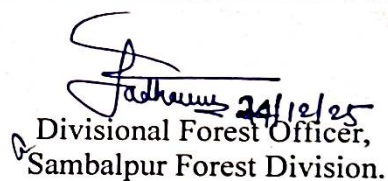 24/12/25
Divisional Forest Officer,
Sambalpur Forest Division.